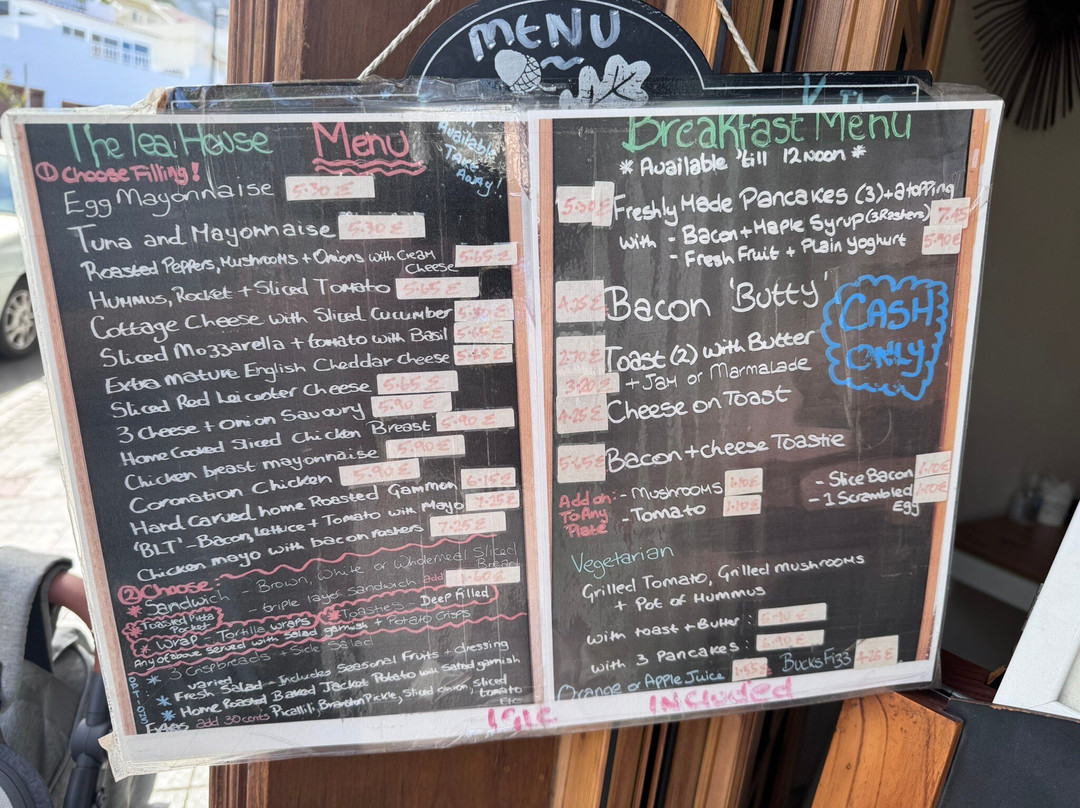 MENU
The Tea House Menu
Available
Take
Away!
① Choose Filling!
Egg Mayonnaise 5.30 £
Tuna and Mayonnaise 5.30 £
Roasted Peppers, Mushrooms + Onions with Cream
Cheese 5.65 £
Hummus, Rocket + Sliced Tomato 5.65 £
Cottage Cheese with Sliced Cucumber
Sliced Mozzarella + tomato with Basil 5.65 £
Extra mature English Cheddar Cheese 5.65 £
Sliced Red Leicester Cheese 5.65 £
3 Cheese + Onion Savoury 5.90 £
Home Cooked Sliced Chicken Breast 5.90 £
Chicken breast mayonnaise 5.90 £
Coronation Chicken 5.90 £
Hand Carved home Roasted Gammon 6.15 £
'BLT' - Bacon, lettuce + Tomato with Mayo 7.25 £
Chicken mayo with bacon rashers 7.25 £
② Choose:
* Sandwich - Brown, White or Wholemeal Sliced
Bread
- triple layer sandwich add 1.60 £
* Toasted Pitta
Pocket
* Toasties - Deep filled
* Wrap - Tortilla wraps
Any of above served with salad garnish + Potato Crisps
* 3 Crispbreads + Side Salad
varied
* Fresh Salad - Includes Seasonal Fruits + dressing
* Home Roasted Baked Jacket Potato with salad garnish
Extras add 30 cents Picallili, Branston Pickle, Sliced onion, sliced
tomato
Etc
Breakfast Menu
* Available 'till 12 noon *
5.30 £ Freshly Made Pancakes (3) + a topping
with - Bacon + Maple Syrup (3 Rashers) 7.45
- Fresh Fruit + Plain Yoghurt 5.90 £
4.25 £ Bacon 'Butty'
CASH
ONLY
2.70 £ Toast (2) with Butter
3.20 £ + Jam or Marmalade
4.25 £ Cheese on Toast
5.65 £ Bacon + cheese Toastie
Add on:
To Any
Plate
- Mushrooms 1.10 £
- Tomato 1.10 £
- Slice Bacon 1.10 £
- 1 Scrambled
Egg
Vegetarian
Grilled Tomato, Grilled mushrooms
+ Pot of Hummus
with toast + Butter: 5.90 £
with 3 Pancakes: 6.90 £
Orange or Apple Juice 1.55 £ Bucks Fizz 4.25 £
IGIC INCLUDED